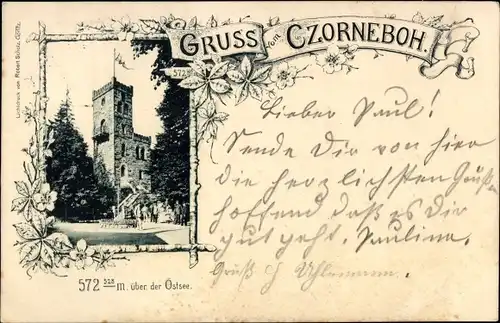 GRUSS vom CZORNEBOH.
Lichtdruck von Robert Scholz, Görlitz.
572
Lieber Paul!
Sende Dir von hier
die herzlichsten Grüße
hoffend daß es Dir
gut geht. Pauline.
Gruß
572 528 m. über der Ostsee.